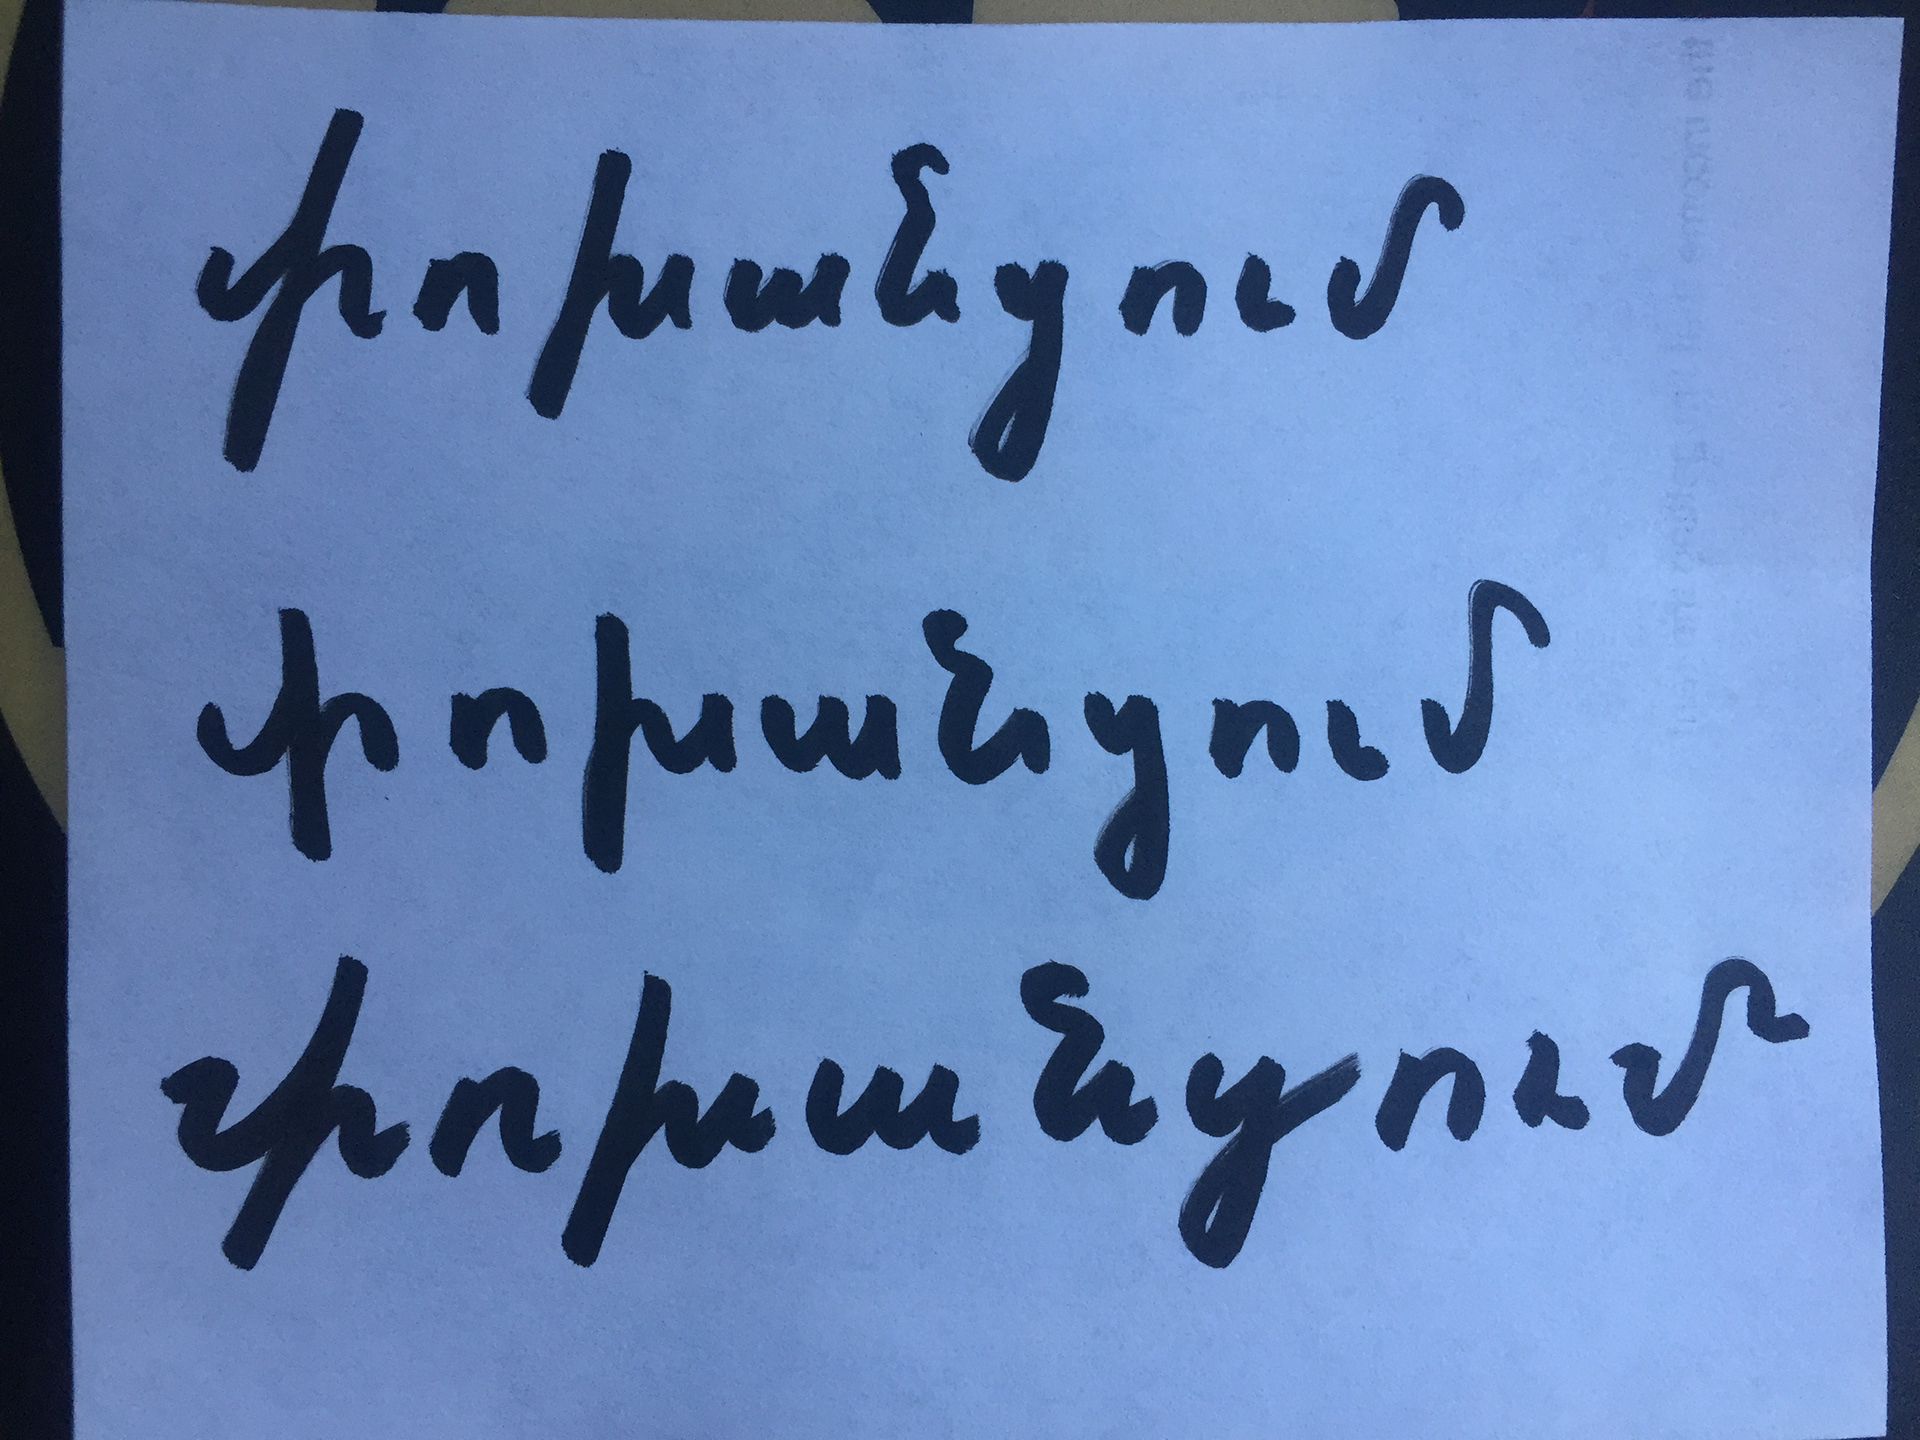 փոխանցում
փոխանցում
փոխանցում